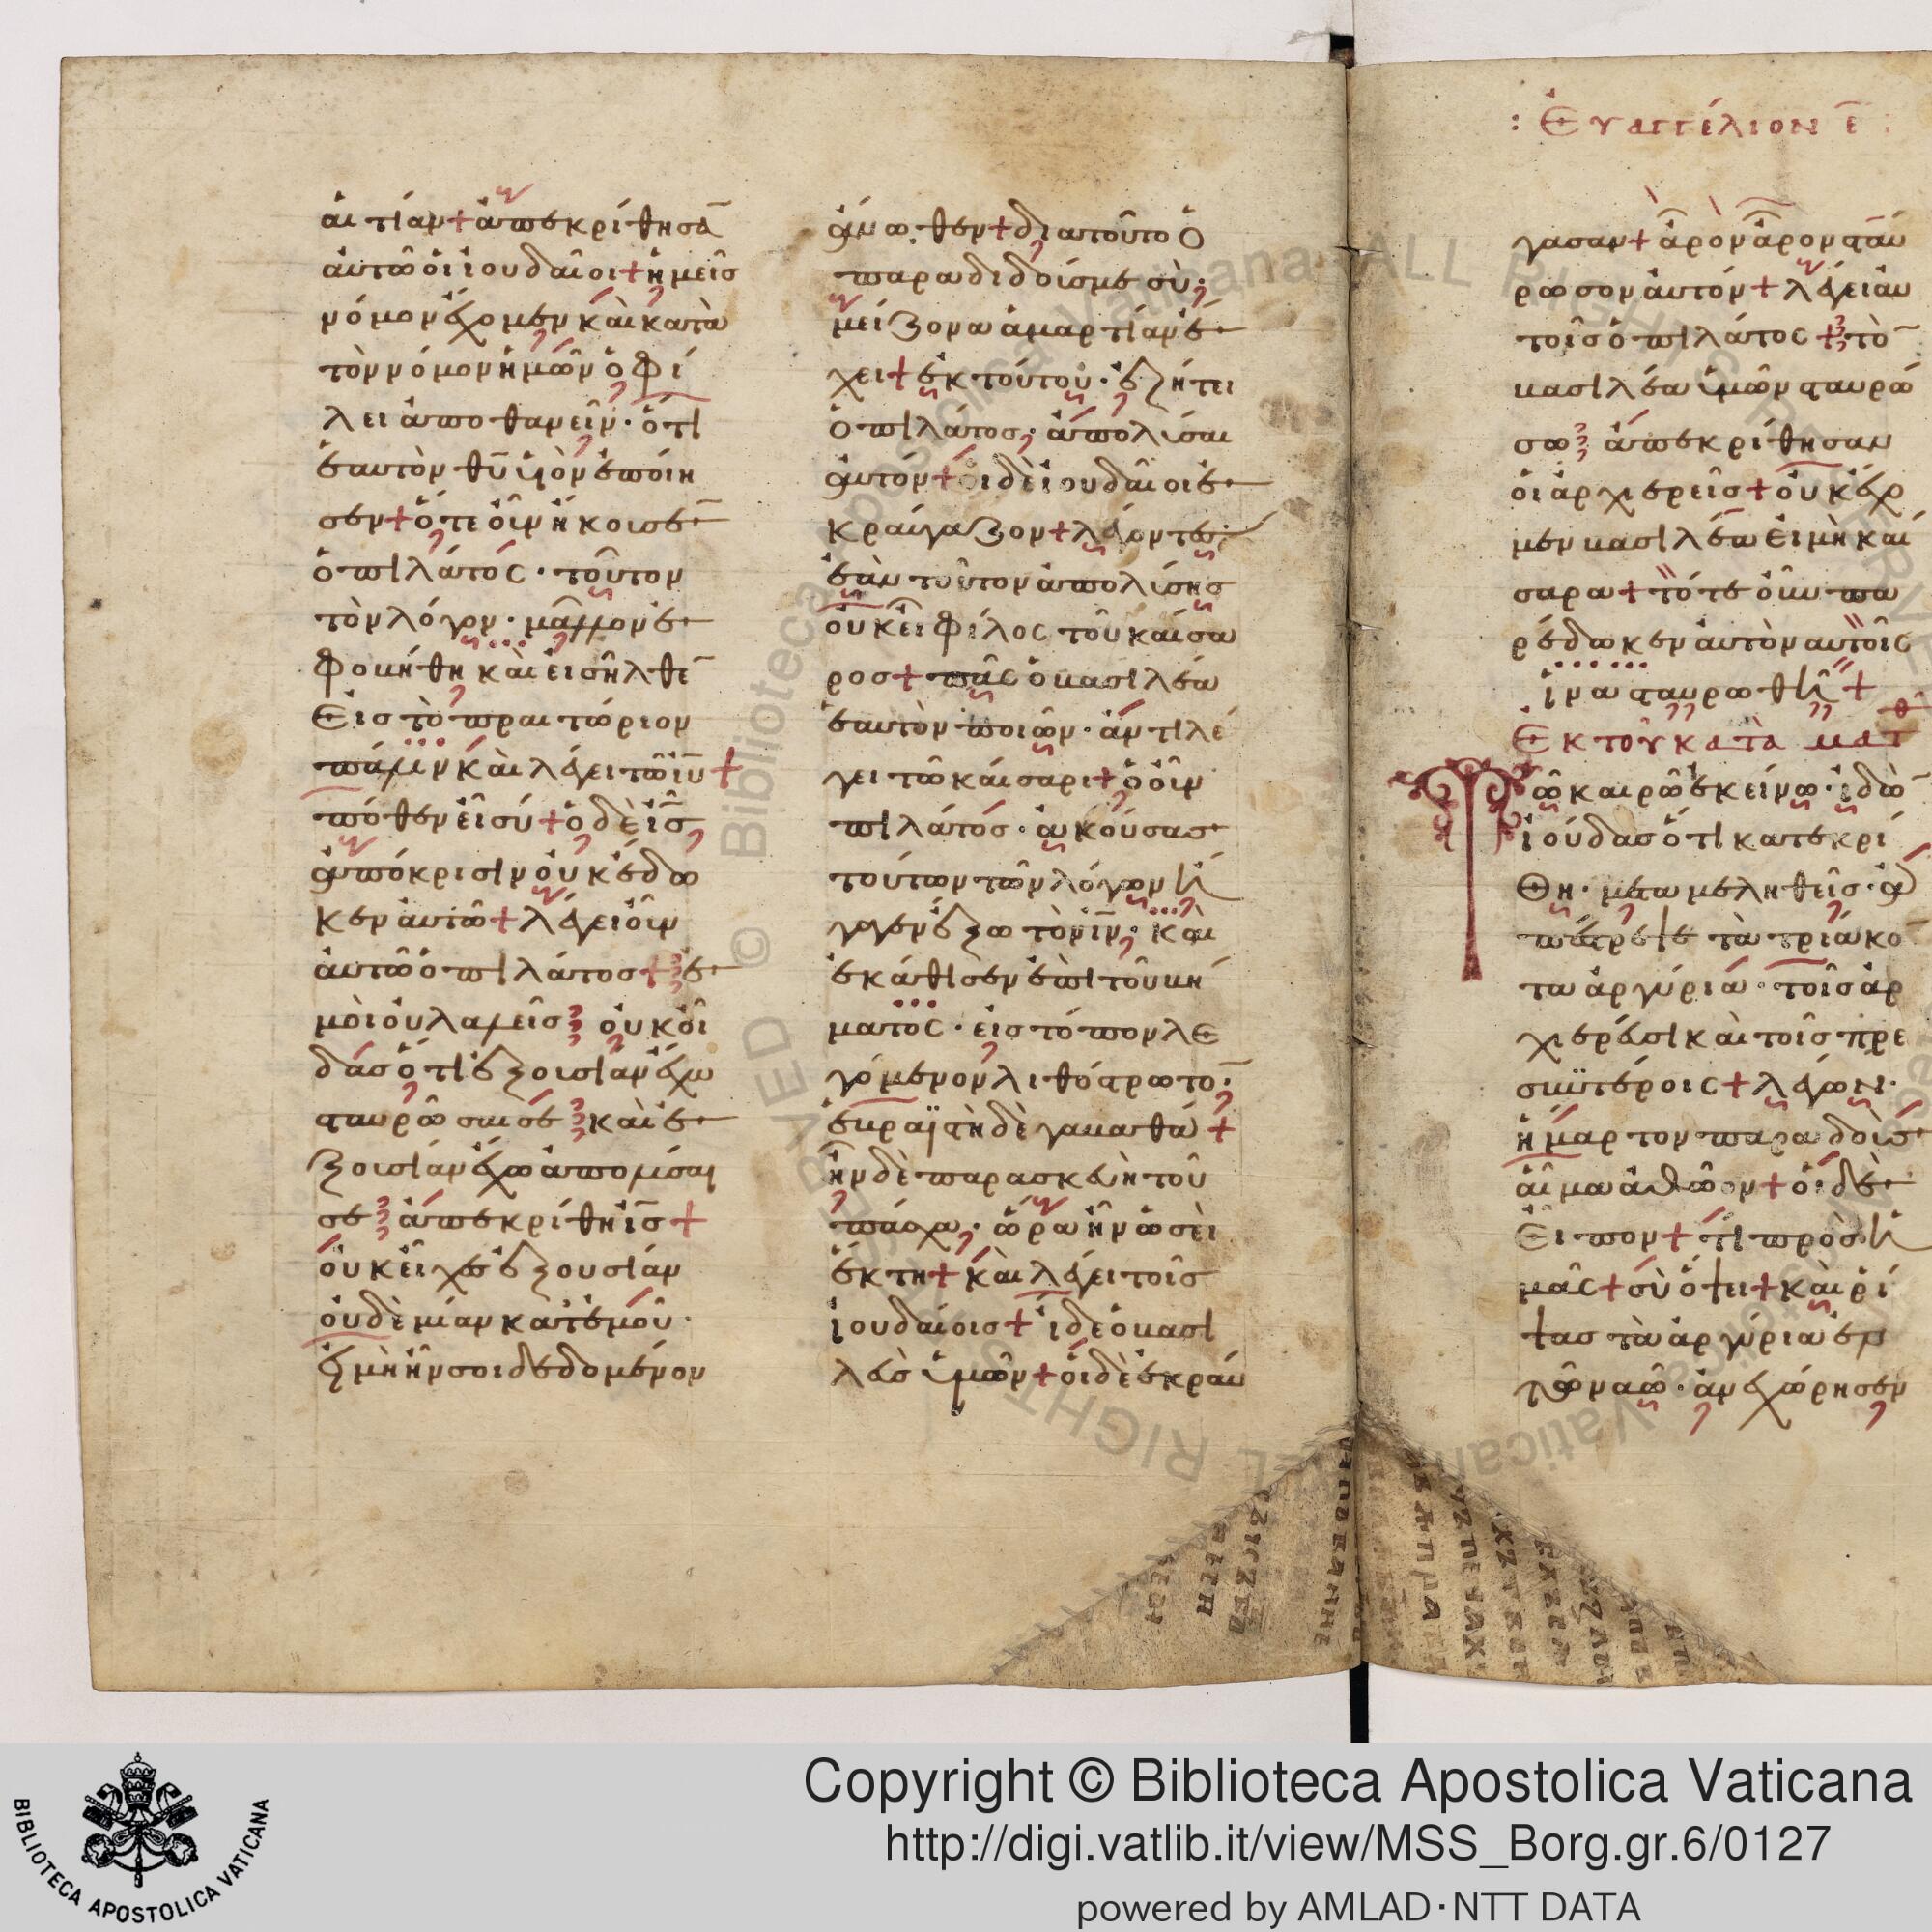 αἰτίαν+ἀπεκρίθησα̅
ἀυτῶ ὁι ἰουδαῖοι+ἡμεῖσ
νόμον ἔχομεν κὰι κατὰ
τὸν νόμον ἡμῶν ὀφί
λει ἀποθανεῖν· ὅτι
ἑαυτὸν θῦ ὑιὸν ἐποίη
σεν+ὅτε ὀῦν ἤκουσε̅
ὁ πιλάτοσ· τοῦτον
τὸν λόγον· μᾶλλον ἐ
φοβήθη κὰι εἰσῆλθε̅
Εἰσ τὸ πραιτώριον
πάλιν κὰι λέγει τῶ ἰῦ+
πόθεν εἶ σύ+ὁ δὲ ἰ̅σ
ἀπόκρισιν οὐκ ἔδω
κεν ἀυτῶ+λέγει ὀῦν
ἀυτῶ ὁ πιλάτοσ+ἐ
μοὶ ὀυ λαλεῖσ ὀυκ ὀῖ
δασ ὅτι ἐξουσίαν ἔχω
σταυρῶσαι σε κὰι ἐ
ξουσίαν ἔχω ἀπολύσαι
σε ἀπεκρίθη ἰ̅σ+
ὀυκ εἶχεσ ἐξουσίαν
ὀυδὲμίαν κατ' ἐμοῦ·
ἐι μὴ ἦν σοι δεδομένον
ἄνωθεν+διατοῦτο Ὁ
παραδιδούσ με σὺ·
μείζονα ἁμαρτίαν ἔ
χει+ἐκ τούτου· ἐζήτει
ὁ πιλάτοσ· ἀπολύσαι
ἀυτόν+ὁι δὲ ἰουδαῖοι ἐ
κραύγαζον+λέγοντεσ·
ἐὰν τοῦτον ἀπολύσησ
ὀυκ εἶ φίλοσ τοῦ καίσα
ροσ+πᾶσ ὁ βασιλέα
ἑαυτὸν ποιῶν· ἀντιλέ
γει τῶ καίσαρι+ὁ ὀῦν
πιλάτοσ· ἀκούσασ
τούτων τῶν λόγων ἤ
γαγεν ἔξω τὸν ἰν̅· κὰι
ἐκάθισεν ἐπὶ τοῦ βή
ματοσ· εἰσ τόπον λε
γόμενον λιθόστρωτο̅·
ἑβραϊστὴ δὲ γαβαθά+
ἦν δὲ παρασκευὴ τοῦ
πάσχα· ὥρα ἦν ὡσεὶ
ἕκτη+κὰι λέγει τοῖσ
ἰουδαίοισ+ἴδε ὁ βασι
λεὺσ ὑμῶν+ὁι δὲ ἐκραύ
: Ἐυαγγέλιον ε̅ :
γασαν+ἆρον ἆρον σταύ
ρωσον ἀυτόν+λέγει ἀυ
τοῖσ ὁ πιλάτοσ+τὸ̅
βασιλέα ὑμῶν σταυρώ
σω ἀπεκρίθησαν
ὁι ἀρχιερεῖσ+ὀυκ ἔχο
μεν βασιλέα εἰ μὴ καί
σαρα+τότε ὀῦν πα
ρέδωκεν ἀυτὸν αυτοῖσ
ἵνα σταυρωθῆ+
Ἐκ τοῦ κατὰ ματθ
Τῶ καιρῶ ἐκείνω· ἰδὼ̅
ἰούδασ ὅτι κατεκρί
θη· μεταμεληθεῖσ· ἀ
πέστρεψε τὰ τριάκο̅
τα ἀργύρια· τοῖσ ἀρ
χιερέυσι κὰι τοῖσ πρε
σβυτέροισ+λέγων·
ἥμαρτον παραδοὺσ
ἁῖμα ἀθῶον+ὁι δὲ
Εἶπον+τί πρὸσ ἡ
μᾶσ+σὺ ὄψει+κὰι ῥί
ψασ τὰ ἀργύρια ἐν
τῶ ναῶ· ἀνεχώρησεν
Copyright © Biblioteca Apostolica Vaticana
http://digi.vatlib.it/view/MSS_Borg.gr.6/0127
powered by AMLAD·NTT DATA
BIBLIOTECA APOSTOLICA VATICANA